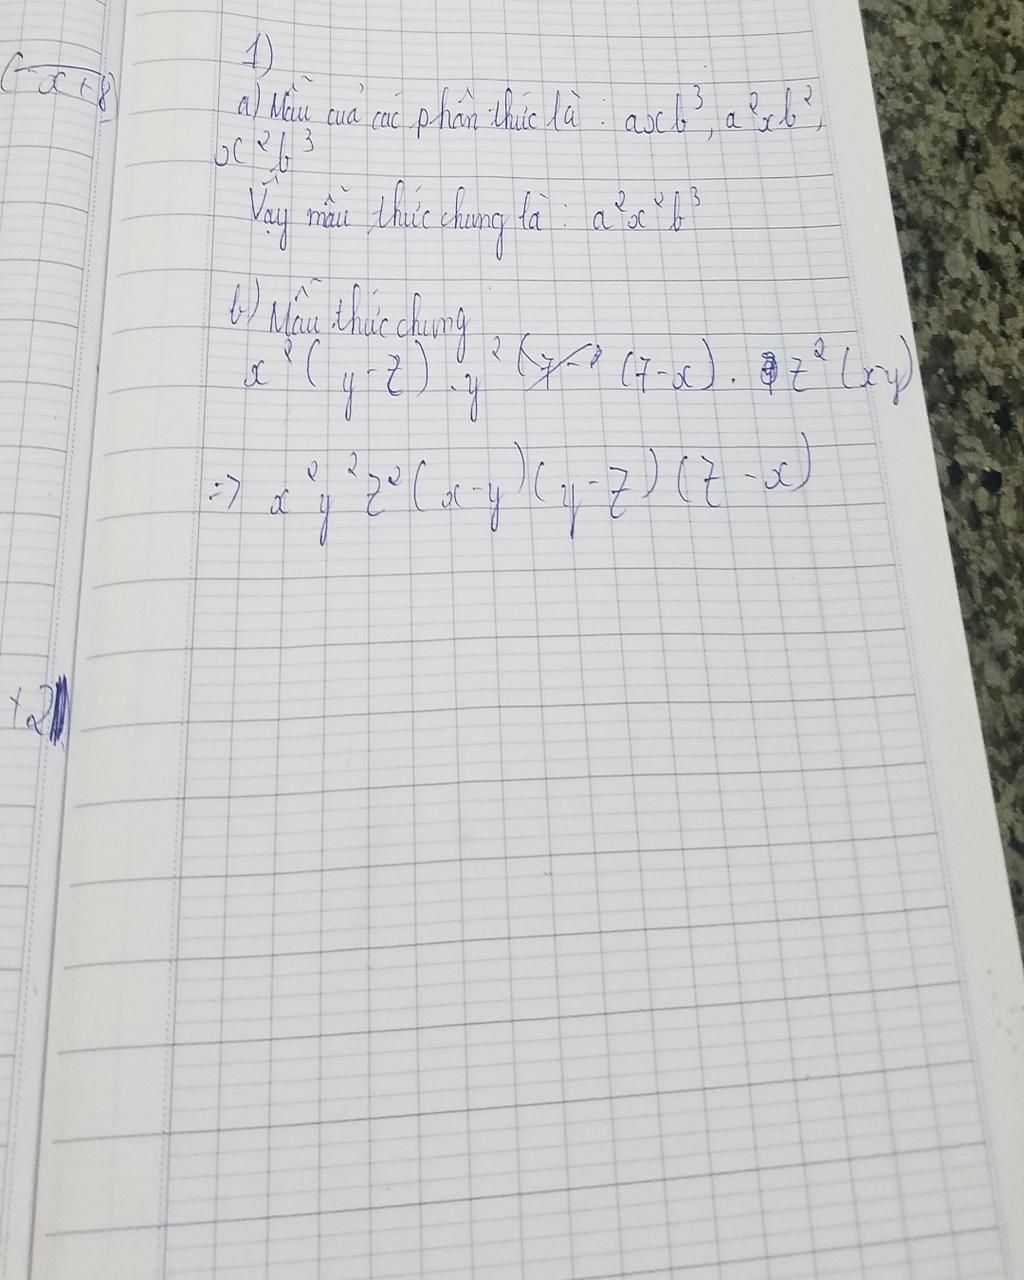 (-x+8)
1)
a) Mẫu của các phân thức là : axb³, a²xb²,
x²b³
Vậy mẫu thức chung là : a²x²b³
b) Mẫu thức chung
x²(y-z).y²(z-x). z²(x-y)
=> x²y²z²(x-y)(y-z)(z-x)
+2